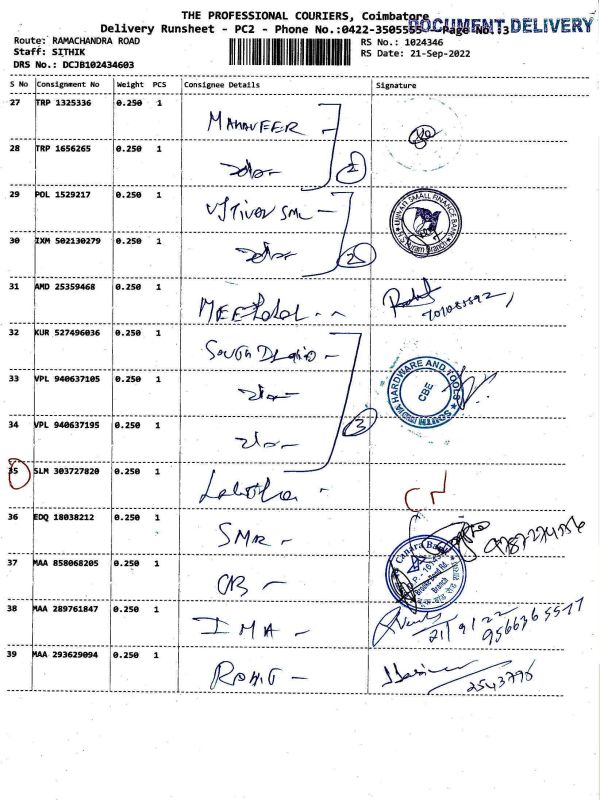 THE PROFESSIONAL COURIERS, Coimbatore
DOCUMENT DELIVERY
Delivery Runsheet - PC2 - Phone No.:0422-3505555 Page No.:3
Route: RAMACHANDRA ROAD
RS No.: 1024346
Staff: SITHIK
RS Date: 21-Sep-2022
DRS No.: DCJB102434603
S No Consignment No Weight PCS Consignee Details Signature
27 TRP 1325336 0.250 1
MAHAVEER
28 TRP 1656265 0.250 1
29 POL 1529217 0.250 1
UJJIVAN SMALL FINANCE BANK
30 IXM 502130279 0.250 1
2
31 AMD 25359468 0.250 1
32 KUR 527496036 0.250 1
SOUTH
33 VPL 940637105 0.250 1
HARDWARE AND TOOLS
CBE
34 VPL 940637195 0.250 1
3
35 SLM 303727820 0.250 1
CN
36 EDQ 18038212 0.250 1
SMR
37 MAA 858068205 0.250 1
CB
Canara Bank
38 MAA 289761847 0.250 1
IMA
21/9/22
9566365577
39 MAA 293629094 0.250 1
ROHIT
2543796